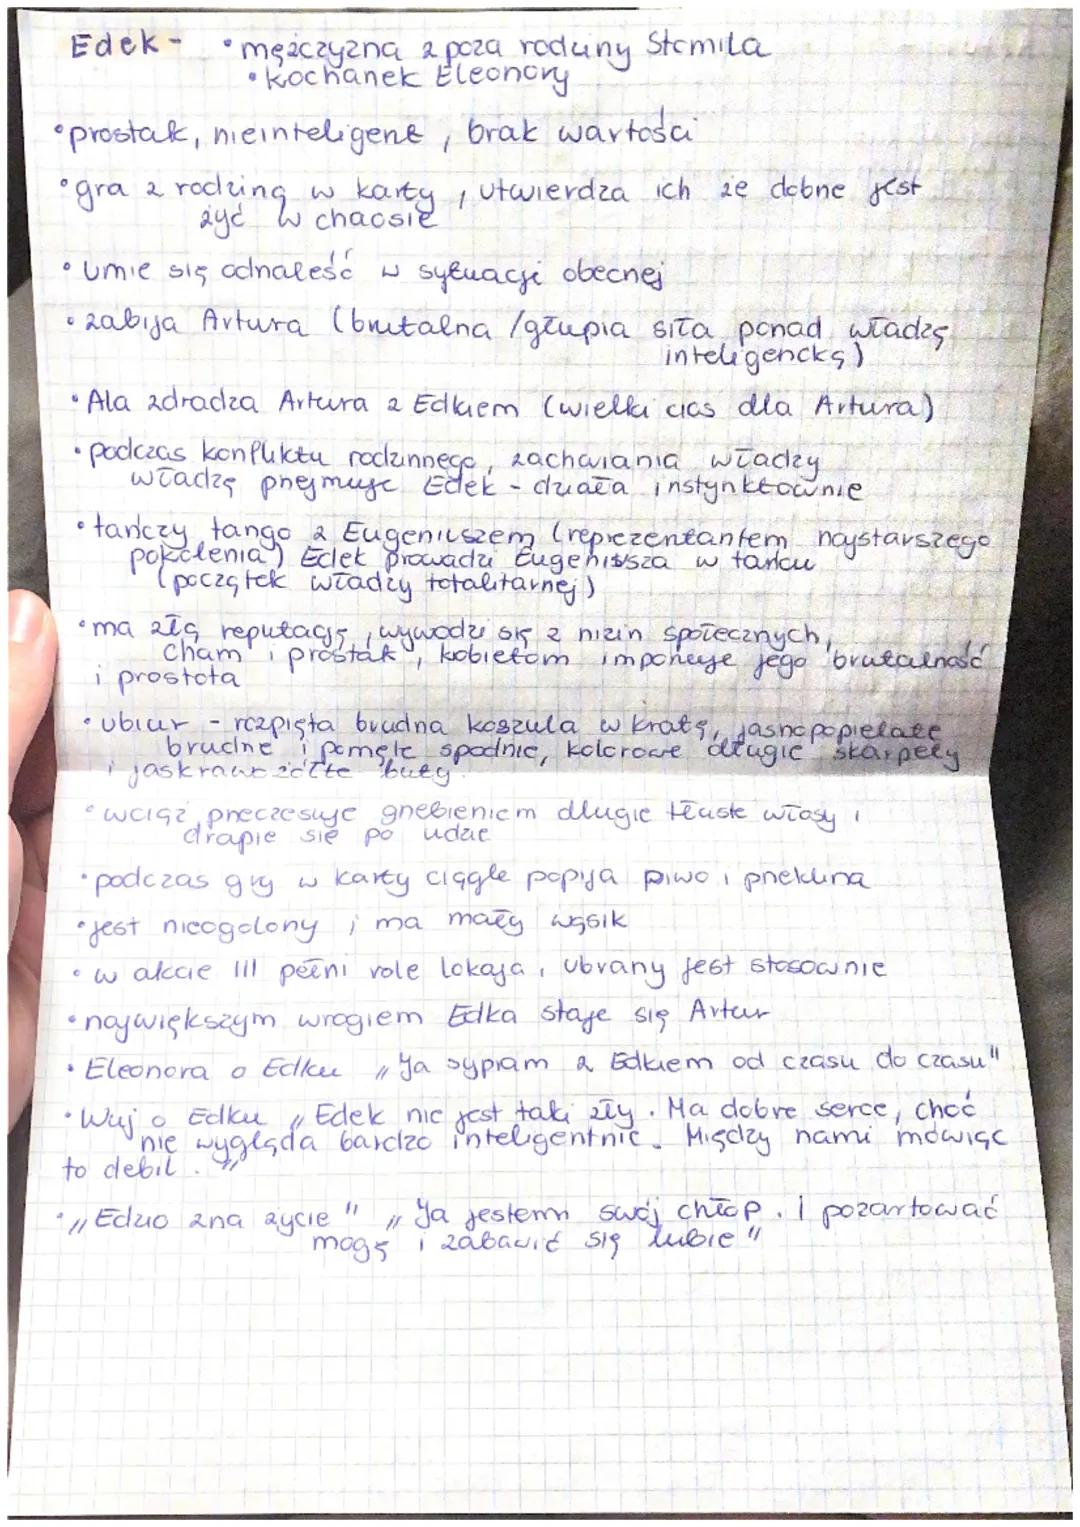 Edek - • mężczyzna z poza rodziny Stomila
• kochanek Eleonory
• prostak, nieinteligent, brak wartości
• gra z rodziną w karty, utwierdza ich że dobne jest
żyć w chaosie
• umie się odnaleść w sytuacji obecnej
• zabija Artura (brutalna /głupia siła ponad władzę
inteligencką)
• Ala zdradza Artura z Edkiem (wielki cios dla Artura)
• podczas konfliktu rodzinnego, zachwiania władzy
władzę przejmuje Edek - działa instynktownie
• tańczy tango z Eugeniuszem (reprezentantem najstarszego
pokolenia) Edek prowadzi Eugeniusza w tańcu
(początek władzy totalitarnej)
• ma złą reputację, wywodzi się z nizin społecznych,
cham i prostak, kobietom imponuje jego brutalność
i prostota
• ubiur - rozpięta brudna koszula w kratę, jasnopopielate
brudne i pomięte spodnie, kolorowe długie skarpety
i jaskrawo żółte buty.
• wciąż przeczesuje grzebieniem długie tłuste włosy i
drapie się po udzie
• podczas gry w karty ciągle popija piwo i przeklina
• jest nieogolony i ma mały wąsik
• w akcie III pełni role lokaja, ubrany jest stosownie
• największym wrogiem Edka staje się Artur
• Eleonora o Edku „Ja sypiam z Edkiem od czasu do czasu"
• Wuj o Edku „Edek nie jest taki zły. Ma dobre serce, choć
nie wygląda bardzo inteligentnie. Między nami mówiąc
to debil."
• „Edzio zna życie" „Ja jestem swój chłop. I pożartować
mogę i zabawić się lubie"